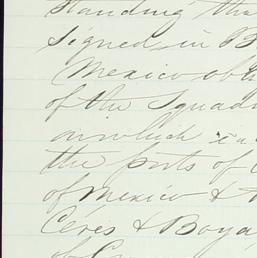 standing the
signed in B
Mexico ob
of the Squad
in which
the ports of
of Mexico &
Ceres & Boya
of